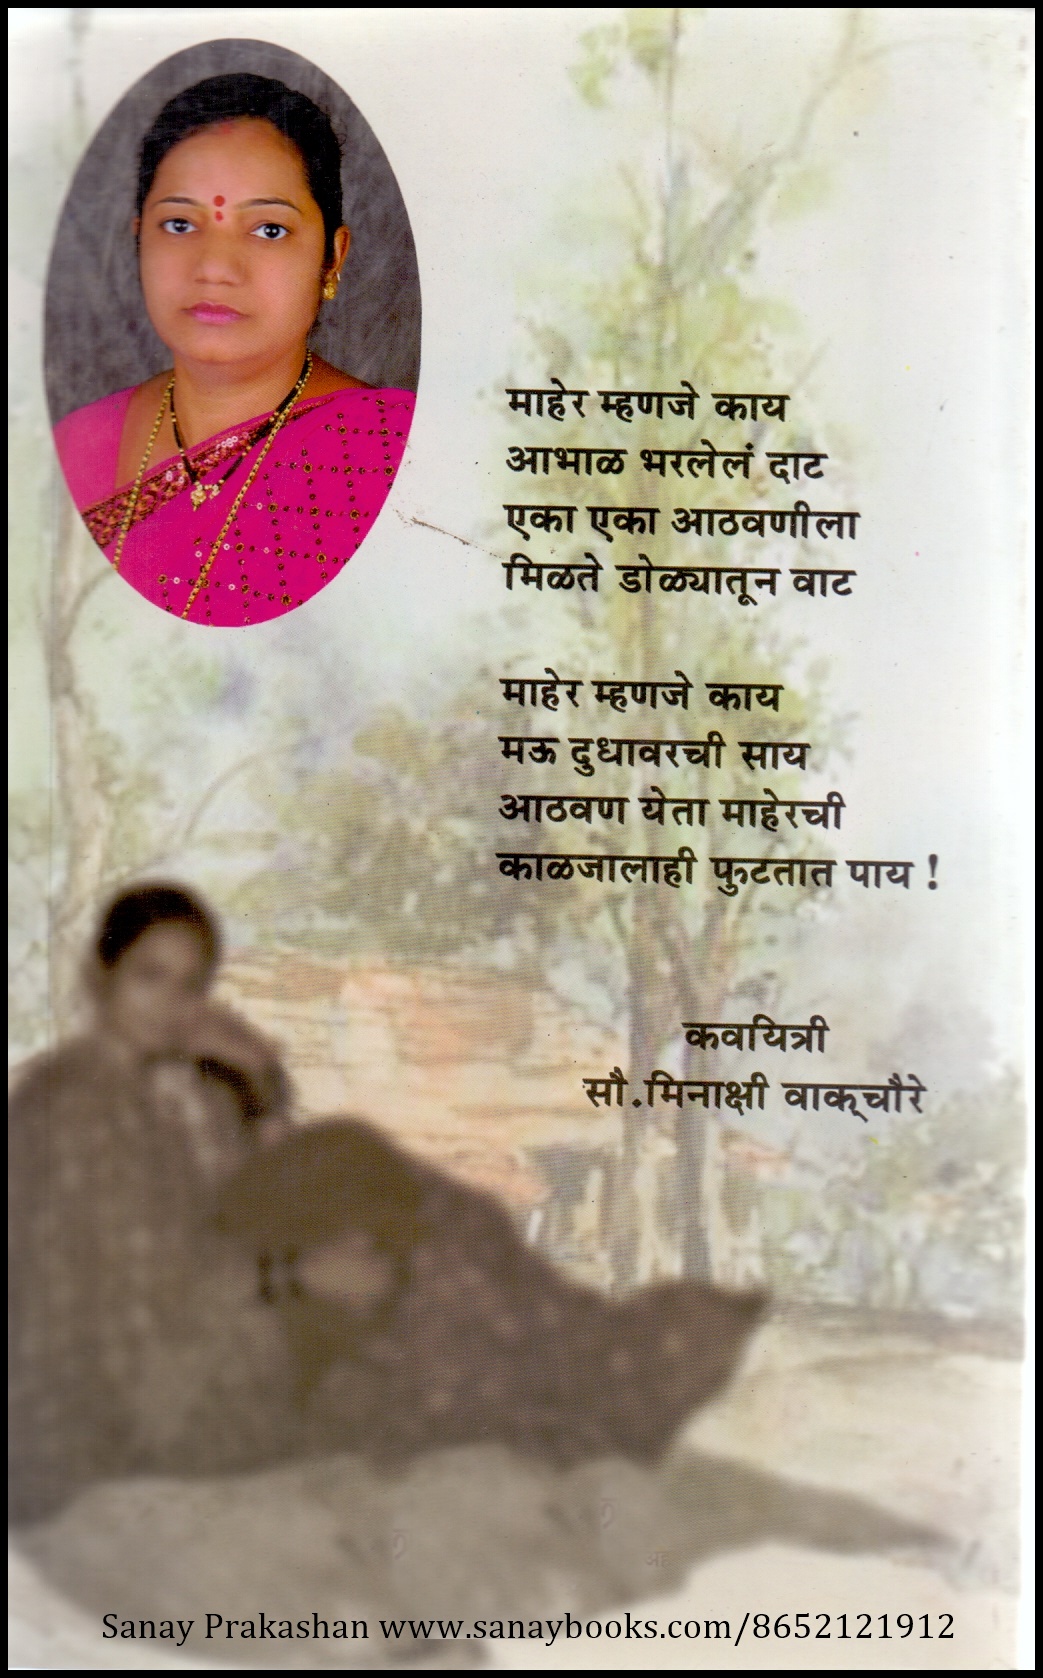 माहेर म्हणजे काय
आभाळ भरलेलं दाट
एका एका आठवणीला
मिळते डोळ्यातून वाट
माहेर म्हणजे काय
मऊ दुधावरची साय
आठवण येता माहेरची
काळजालाही फुटतात पाय !
कवयित्री
सौ.मिनाक्षी वाक्‌चौरे
Sanay Prakashan www.sanaybooks.com/8652121912